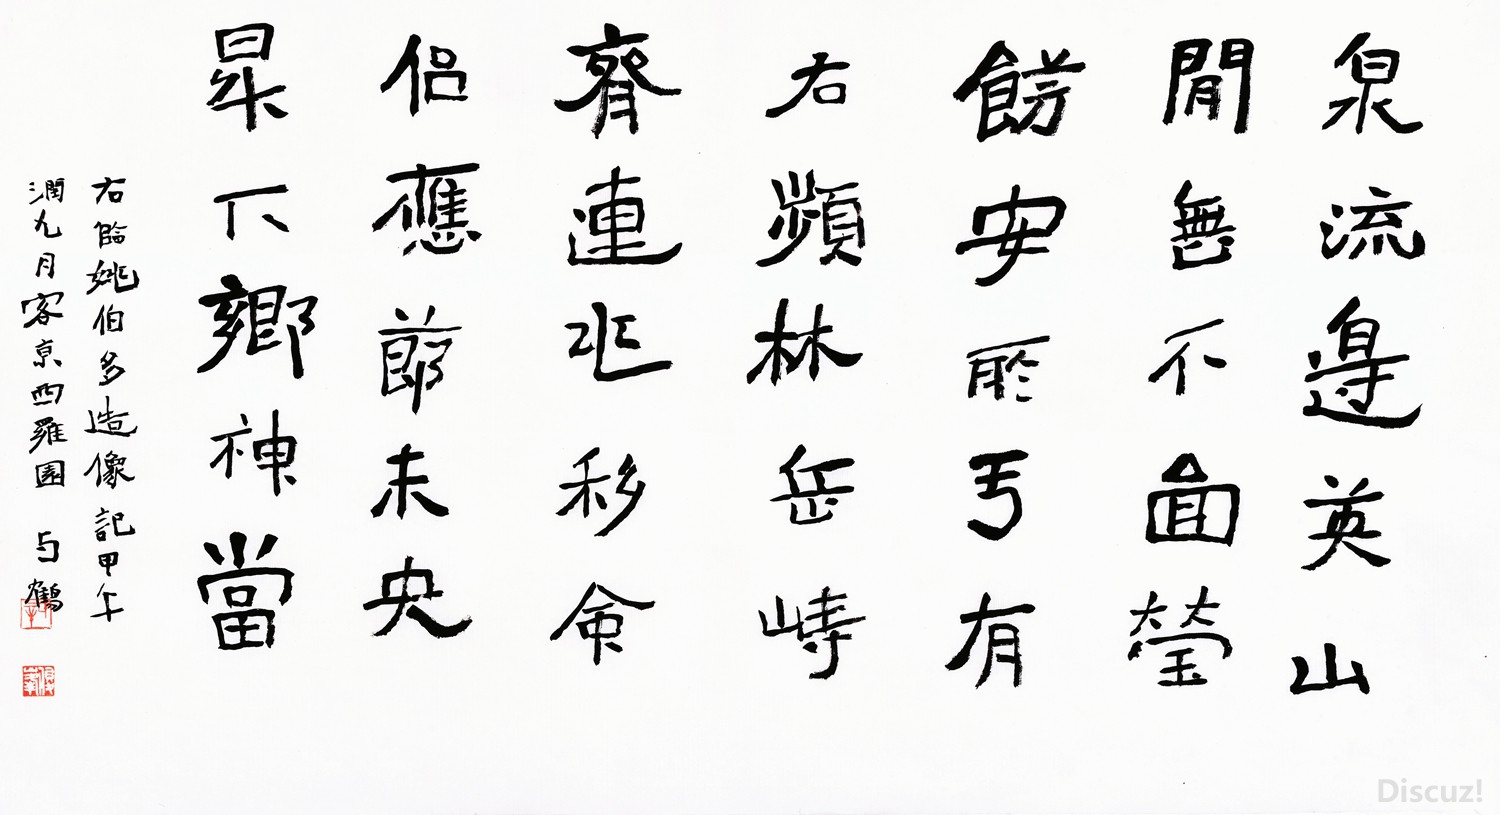 泉流邊英山
閒無不面瑩
餝安所丐有
右頻林岳峙
齊連兆移命
侶應節未央
昇下鄉神當
右臨姚伯多造像記甲午
潤九月客京西羅園 与鶴
Discuz!